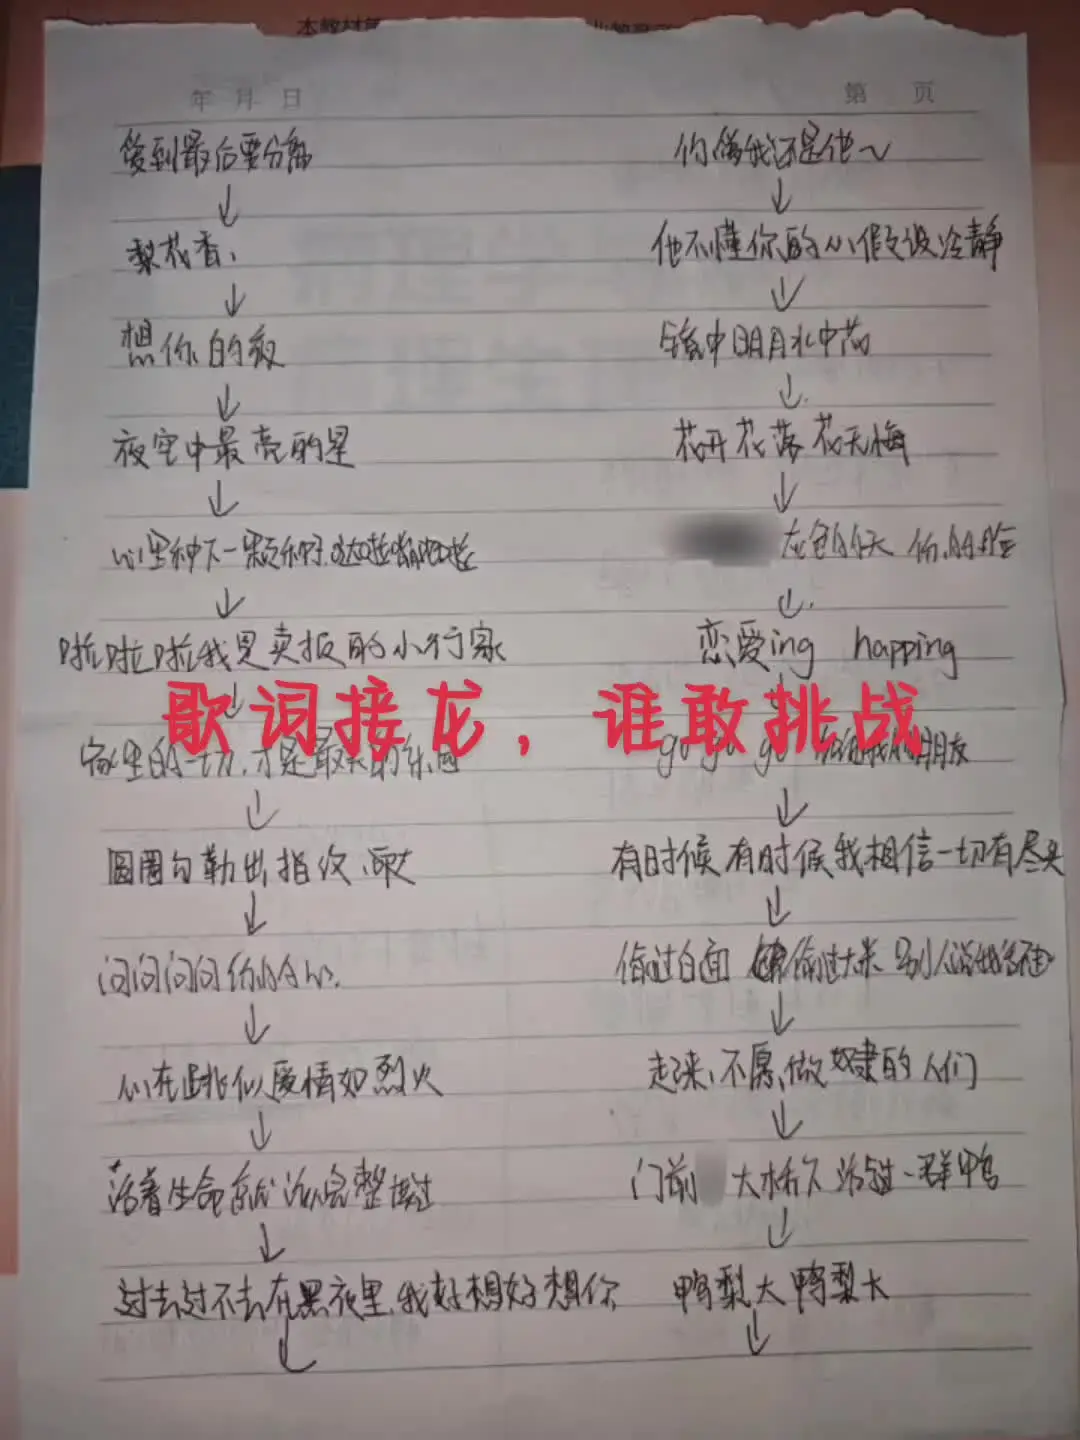 本教材
年 月 日
第 页
爱到最后要分离
↓
梨花香,
↓
想你的夜
↓
夜空中最亮的星
↓
心里种下一颗种子
↓
啦啦啦我是卖报的小行家
↓
家里的一切,才是最大的乐
↓
圆圈勾勒出指纹
↓
问问问问你的心
↓
心在此非似爱情如烈火
↓
活着生命就该完整度过
↓
过去过不去在黑夜里,我好想好想你
↓
你像我还是他~
↓
他不懂你的心假设冷静
↓
镜中明月水中花
↓
花开花落花无悔
↓
灰色的天 你的脸
↓
恋爱ing happing
↓
go go go 朋友
↓
有时候有时候我相信一切有尽头
↓
偷过白面 偷过大米 别人
↓
起来,不愿做奴隶的人们
↓
门前大桥下 游过一群鸭
↓
鸭梨大鸭梨大
↓
歌词接龙,谁敢挑战